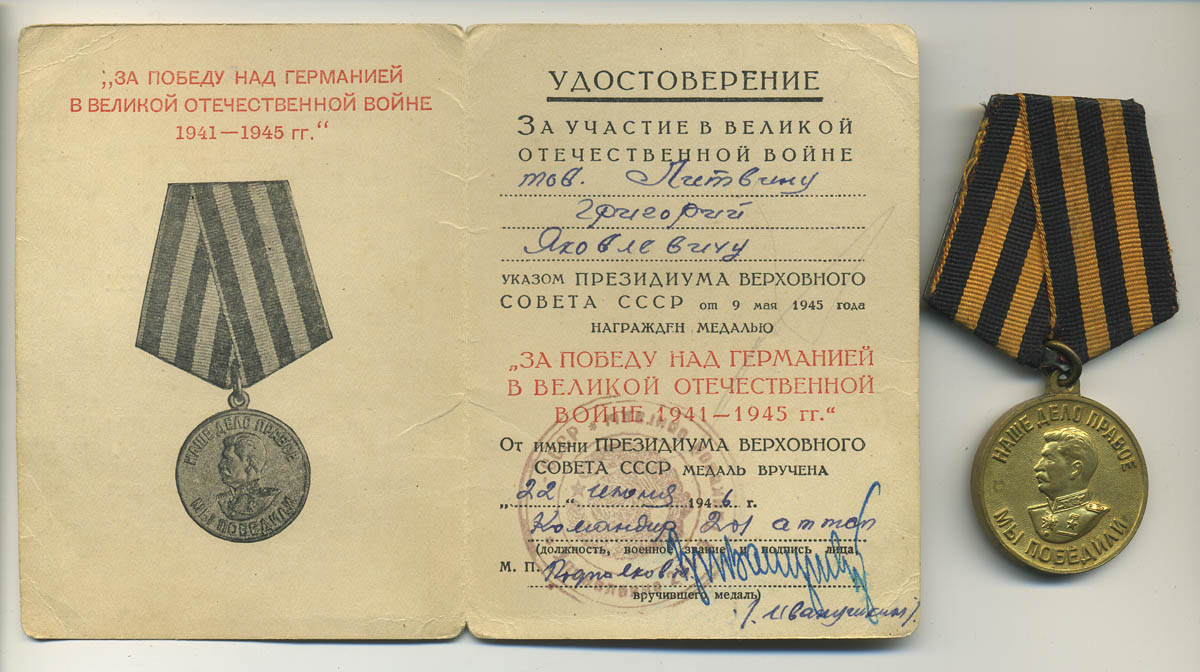 „ЗА ПОБЕДУ НАД ГЕРМАНИЕЙ
В ВЕЛИКОЙ ОТЕЧЕСТВЕННОЙ ВОЙНЕ
1941—1945 гг.“
НАШЕ ДЕЛО ПРАВОЕ
МЫ ПОБЕДИЛИ
УДОСТОВЕРЕНИЕ
ЗА УЧАСТИЕ В ВЕЛИКОЙ
ОТЕЧЕСТВЕННОЙ ВОЙНЕ
тов. Литвину
Григорий
Яковлевичу
УКАЗОМ ПРЕЗИДИУМА ВЕРХОВНОГО
СОВЕТА СССР от 9 мая 1945 года
НАГРАЖДЕН МЕДАЛЬЮ
„ЗА ПОБЕДУ НАД ГЕРМАНИЕЙ
В ВЕЛИКОЙ ОТЕЧЕСТВЕННОЙ
ВОЙНЕ 1941—1945 гг.“
От имени ПРЕЗИДИУМА ВЕРХОВНОГО
СОВЕТА СССР МЕДАЛЬ ВРУЧЕНА
„22“ июня 1946 г.
Командир
(должность, военное звание и подпись лица,
М. П.
вручившего медаль)
/Иванушкин/.
НАШЕ ДЕЛО ПРАВОЕ
МЫ ПОБЕДИЛИ